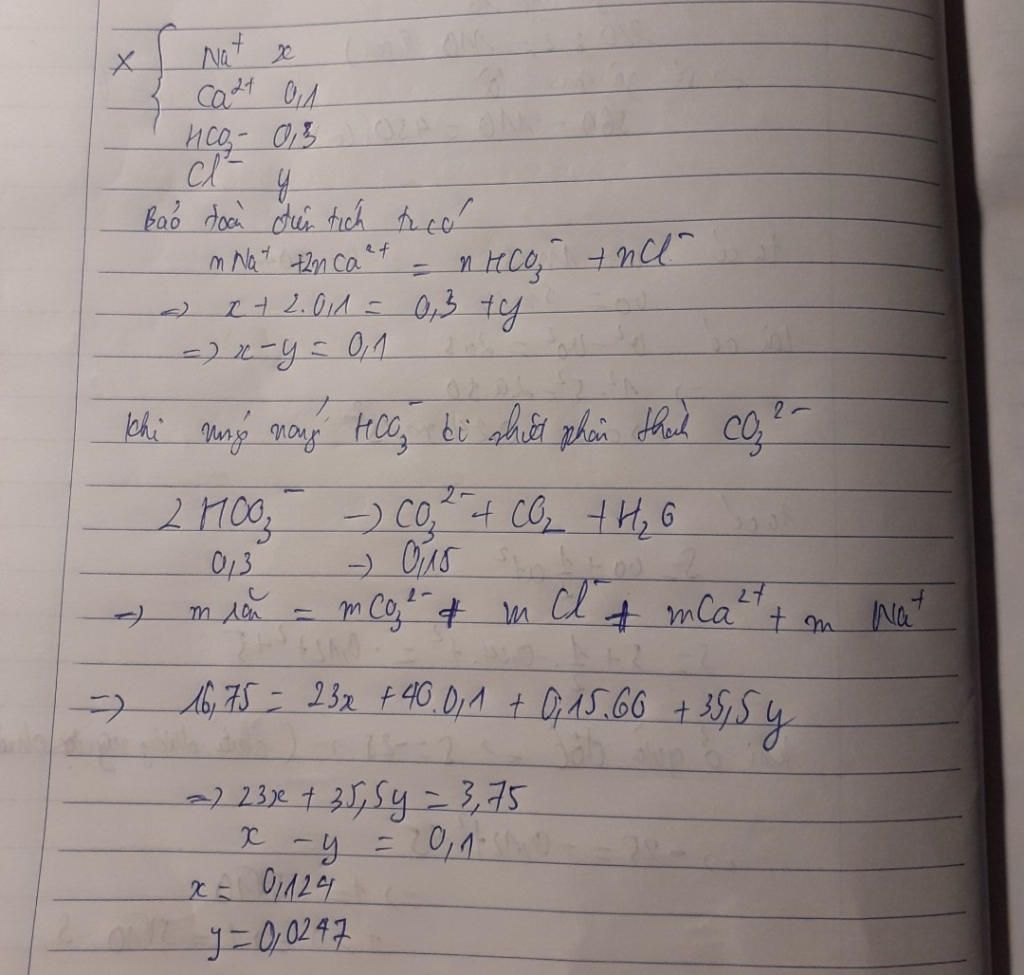 X { Na⁺ x
Ca²⁺ 0,1
HCO₃⁻ 0,3
Cl⁻ y
Bảo toàn điện tích ta có
nNa⁺ + 2nCa²⁺ = nHCO₃⁻ + nCl⁻
=> x + 2.0,1 = 0,3 + y
=> x - y = 0,1
Khi nung nóng HCO₃⁻ bị nhiệt phân thành CO₃²⁻
2 HCO₃⁻ -> CO₃²⁻ + CO₂ + H₂O
0,3 -> 0,15
=> m rắn = mCO₃²⁻ + m Cl⁻ + mCa²⁺ + m Na⁺
=> 16,75 = 23x + 40.0,1 + 0,15.60 + 35,5y
=> 23x + 35,5y = 3,75
x - y = 0,1
x = 0,124
y = 0,0247